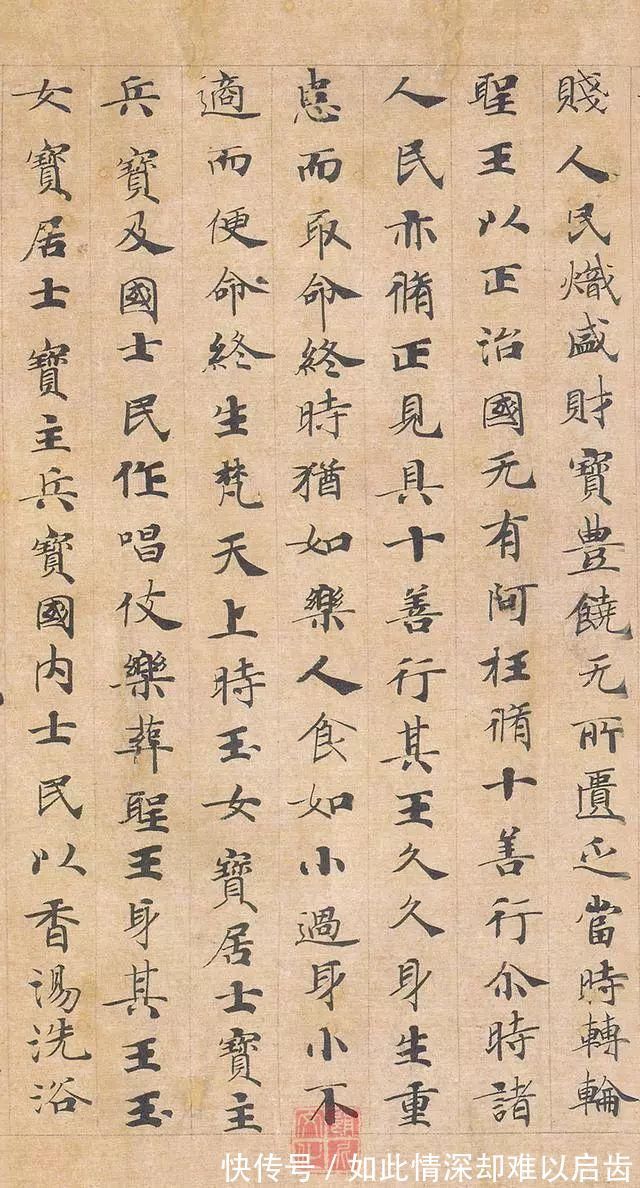 賤人民熾盛財寶豊饒无所匱乏當時轉輪
聖王以正治國无有阿枉脩十善行尒時諸
人民亦脩正見具十善行其王久久身生重
患而取命終時猶如樂人食如小過身小不
適而便命終生梵天上時玉女寶居士寶主
兵寶及國士民作唱伎樂葬聖王身其王玉
女寶居士寶主兵寶國内士民以香湯洗浴
快传号/如此情深却难以启齿